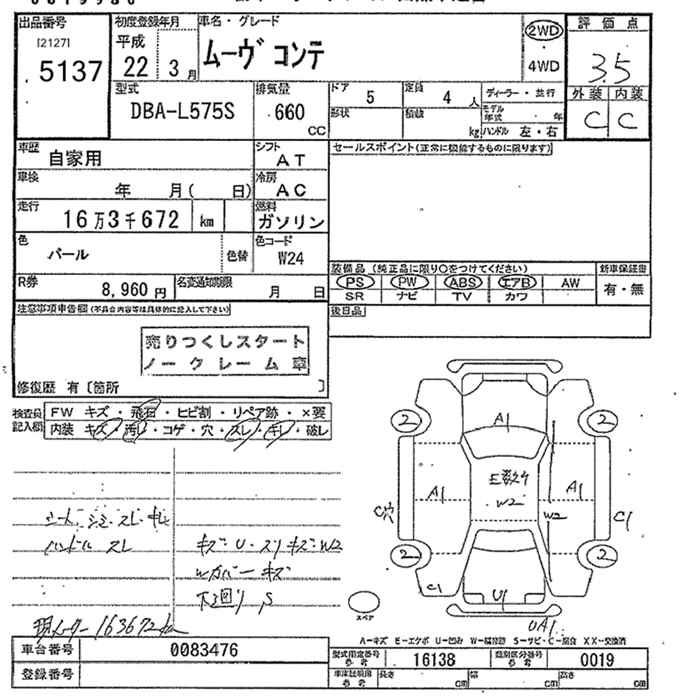 出品番号
[2127]
5137
初度登録年月
平成
22 3月
車名・グレード
ムーヴ コンテ
2WD
4WD
評価点
3.5
外装 内装
C C
型式
DBA-L575S
排気量
660
CC
ドア 5
定員 4人
形状
積載 kg
ディーラー・並行
モデル年式 年
ハンドル 左・右
車歴
自家用
シフト
AT
車検
年 月( 日)
冷房
AC
走行
16万3千672 km
燃料
ガソリン
色
パール
色替
色コード
W24
R券
8,960円
名変通知期限
月 日
セールスポイント(正常に機能するものに限ります)
装備品(純正品に限り○をつけてください)
PS PW ABS エアB AW
SR ナビ TV カワ
新車保証書
有・無
後日品
注意事項申告欄(不具合内容等は具体的に記入して下さい)
売りつくしスタート
ノークレーム車
修復歴 有〔箇所 〕
検査員記入欄
FW キズ・飛石・ヒビ割・リペア跡・×要
内装 キズ・汚レ・コゲ・穴・スレ・キレ・破レ
シート シミ スレ キレ
ハンドル スレ
キズ・U・スリキズ・W2
Wカバー キズ
下廻り S
現メーター 163672km
2 2
A1
A1 A1
W2
W2
C穴 C1
2 2
C1
U1
UA1
スペア
A-キズ E-エクボ U-凹み W-補修跡 S-サビ・C-腐食 XX-交換済
車台番号
0083476
登録番号
型式指定番号
参考
16138
類別区分番号
参考
0019
車庫証明用
参考
長さ cm
幅 cm
高さ cm